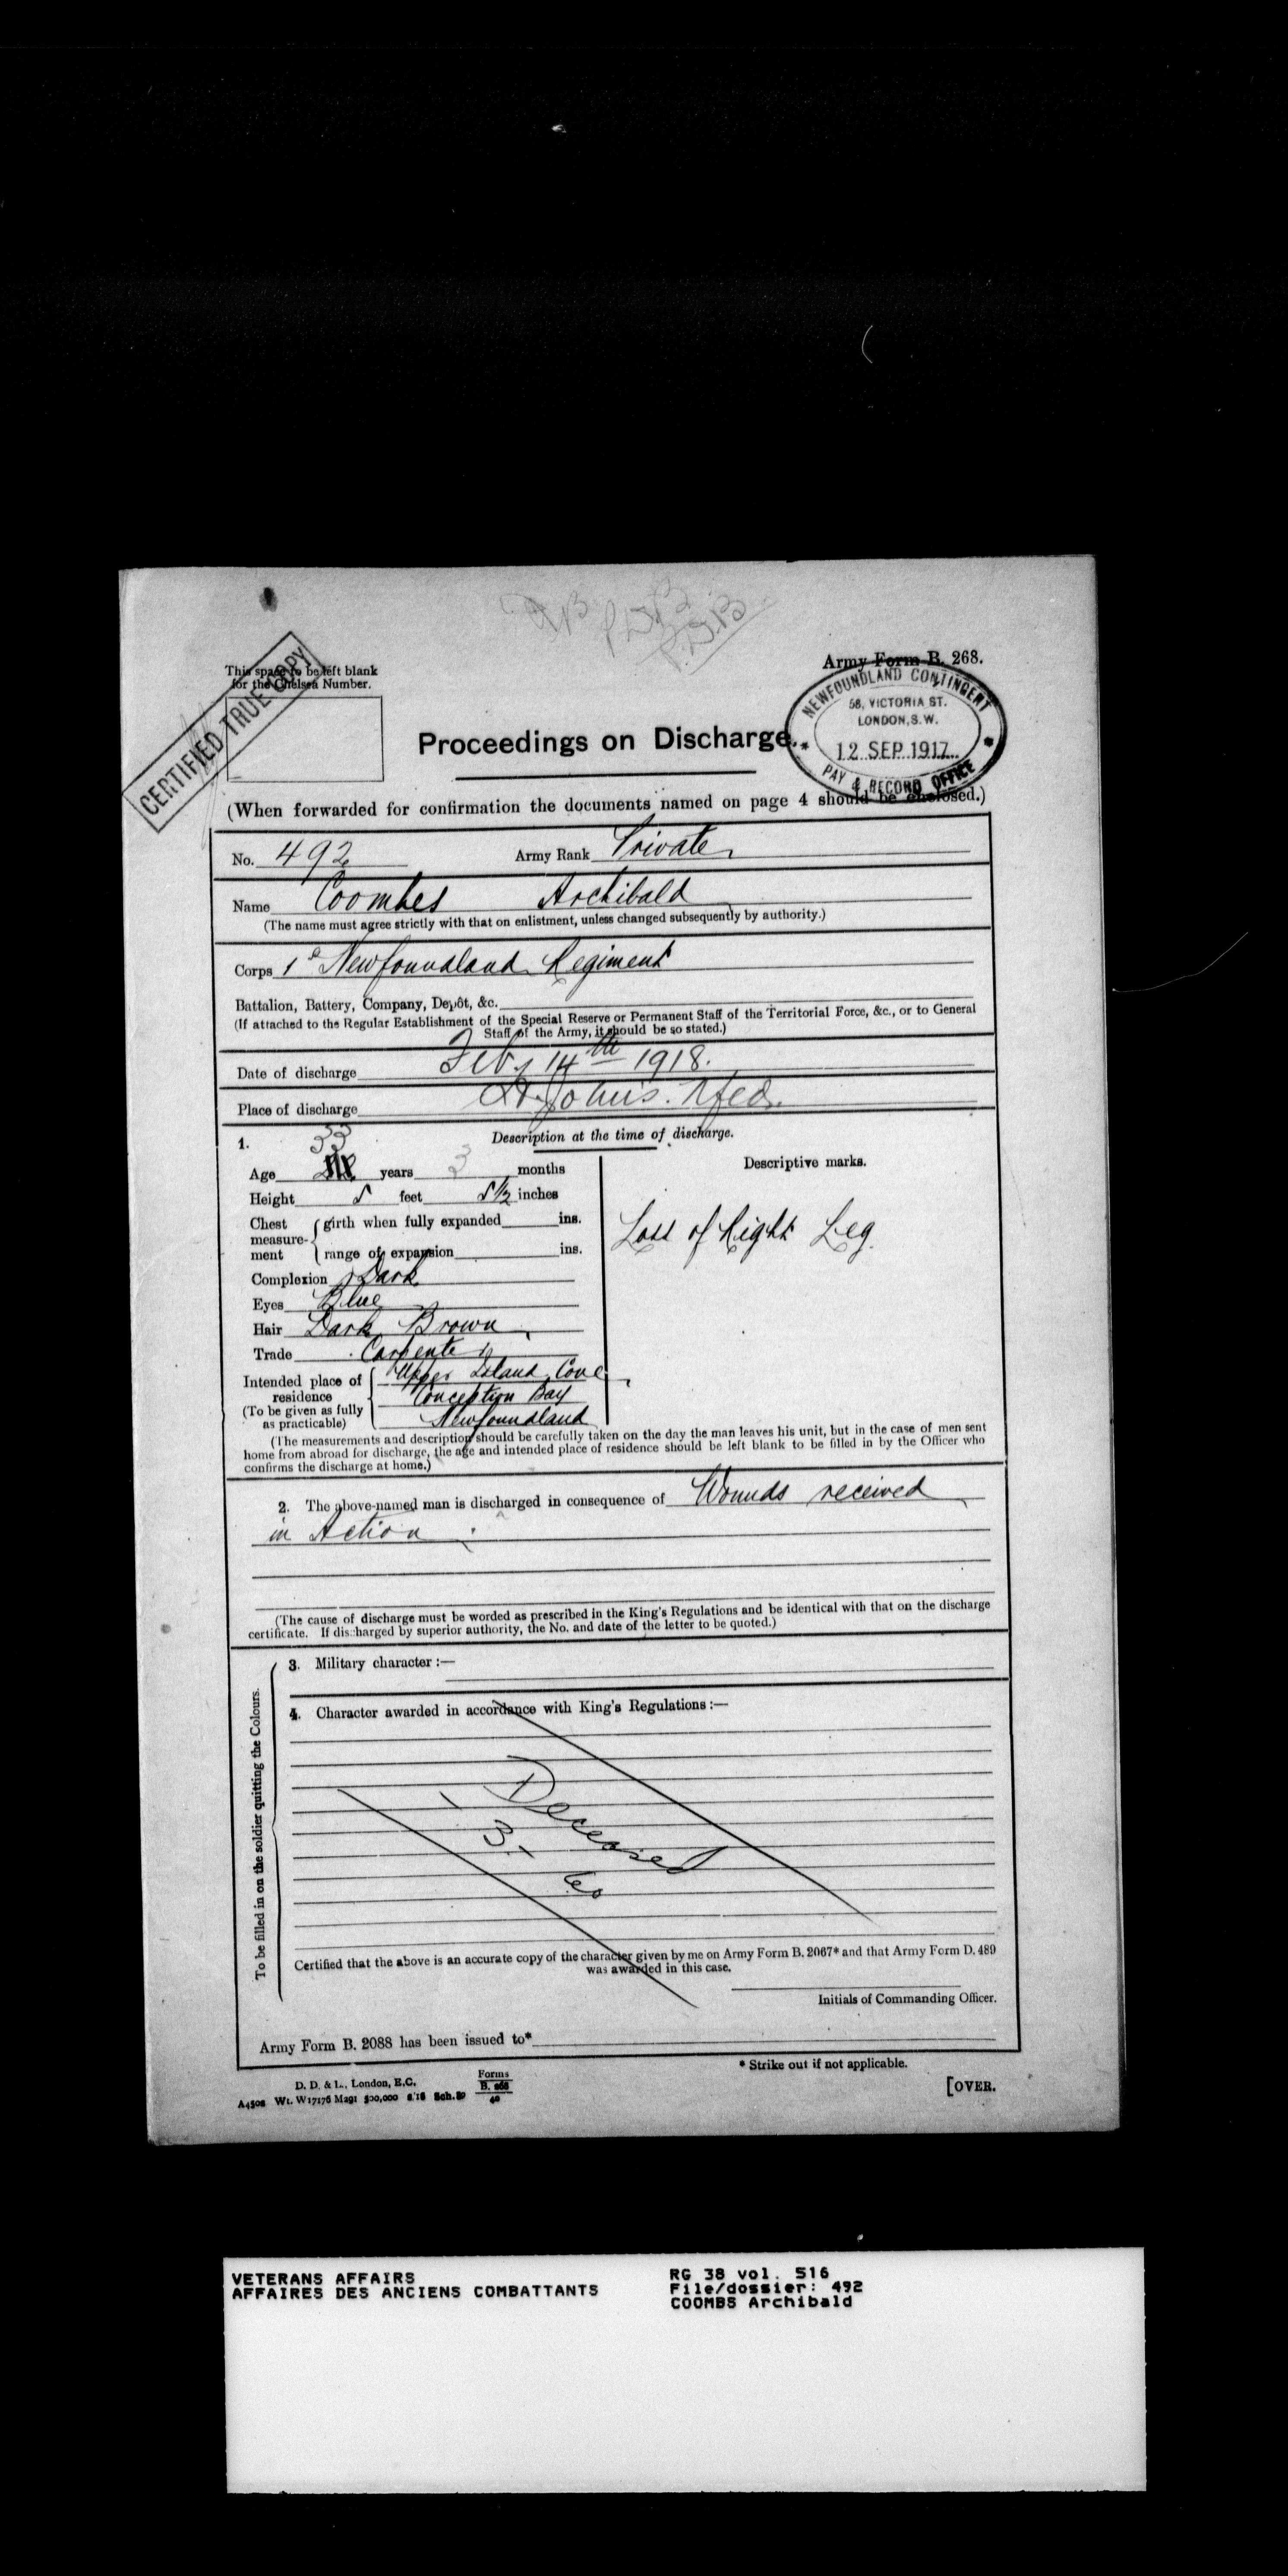 This space to be left blank
for the Chelsea Number.
CERTIFIED TRUE COPY
Army Form B. 268.
NEWFOUNDLAND CONTINGENT
58, VICTORIA ST.
LONDON, S.W.
12 SEP 1917
PAY & RECORD OFFICE
Proceedings on Discharge.
(When forwarded for confirmation the documents named on page 4 should be enclosed.)
No. 492 Army Rank Private
Name Coombes Archibald
(The name must agree strictly with that on enlistment, unless changed subsequently by authority.)
Corps 1st Newfoundland Regiment
Battalion, Battery, Company, Depôt, &c.
(If attached to the Regular Establishment of the Special Reserve or Permanent Staff of the Territorial Force, &c., or to General
Staff of the Army, it should be so stated.)
Date of discharge Feby 14th 1918.
Place of discharge St. John's. Nfld.
1. Description at the time of discharge.
33
Age years 3 months
Descriptive marks.
Height 5 feet 5 1/2 inches
Chest measurement girth when fully expanded ins.
range of expansion ins.
Loss of Right Leg.
Complexion Dark
Eyes Blue
Hair Dark Brown
Trade Carpenter
Intended place of residence Upper Island Cove
Conception Bay
(To be given as fully as practicable) Newfoundland
(The measurements and description should be carefully taken on the day the man leaves his unit, but in the case of men sent
home from abroad for discharge, the age and intended place of residence should be left blank to be filled in by the Officer who
confirms the discharge at home.)
2. The above-named man is discharged in consequence of Wounds received
in Action.
(The cause of discharge must be worded as prescribed in the King's Regulations and be identical with that on the discharge
certificate. If discharged by superior authority, the No. and date of the letter to be quoted.)
To be filled in on the soldier quitting the Colours.
3. Military character :—
4. Character awarded in accordance with King's Regulations :—
Deceased
Certified that the above is an accurate copy of the character given by me on Army Form B. 2067* and that Army Form D. 489
was awarded in this case.
Initials of Commanding Officer.
Army Form B. 2088 has been issued to*
* Strike out if not applicable.
D. D. & L., London, E.C.
A4508 Wt. W17176 M291 500,000 Sch. 30
Forms
B. 268
40
[OVER.
VETERANS AFFAIRS
AFFAIRES DES ANCIENS COMBATTANTS
RG 38 vol. 516
File/dossier: 492
COOMBS Archibald